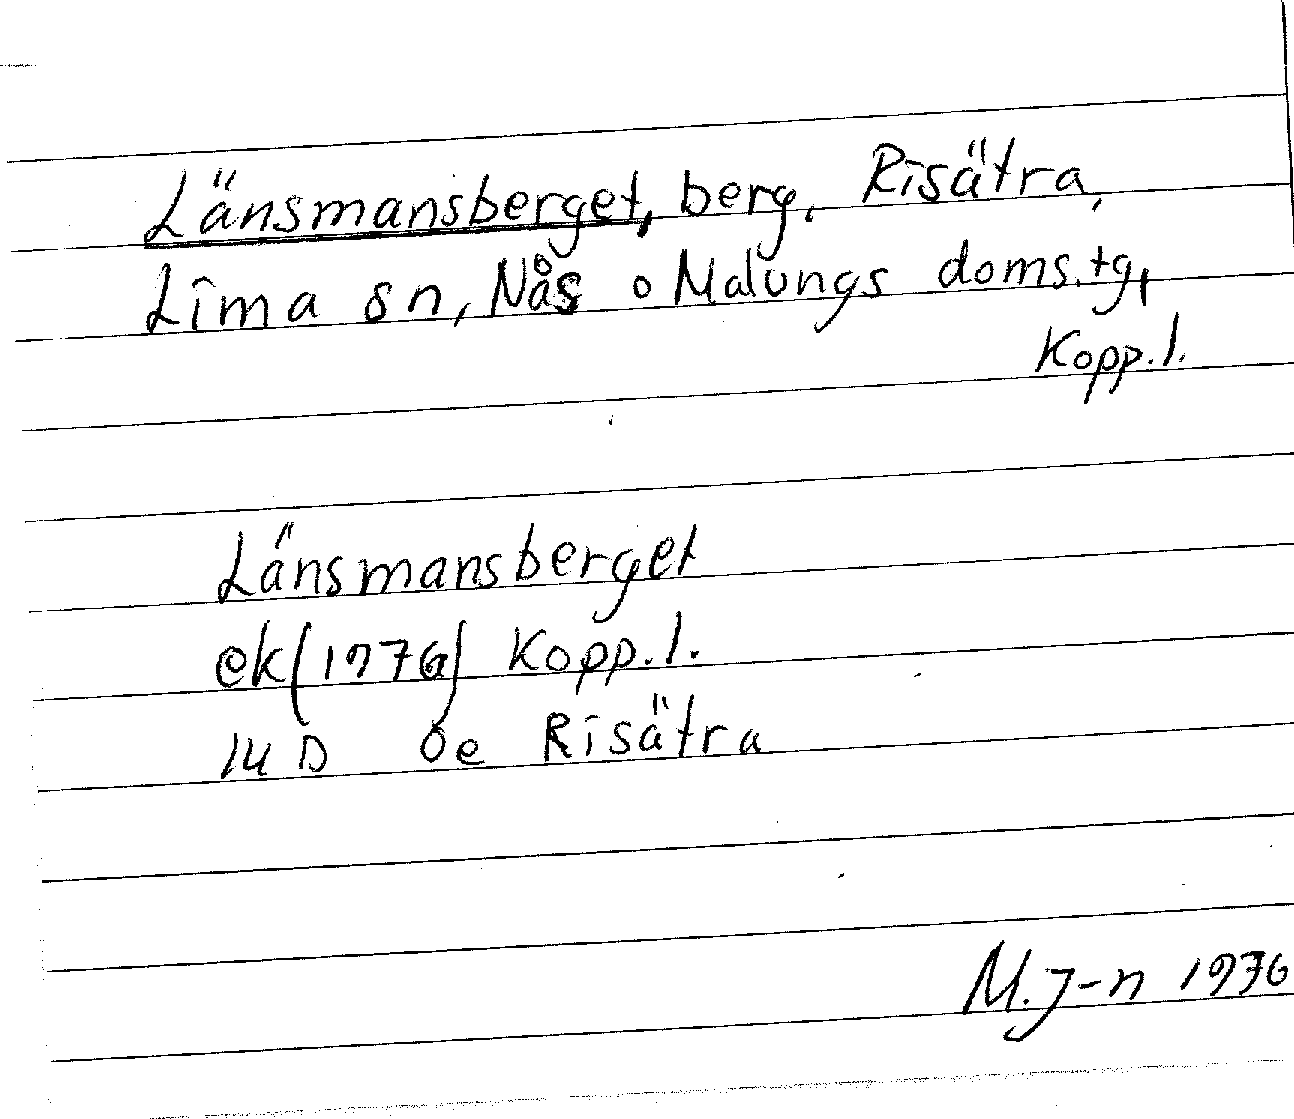 Länsmansberget, berg, Risätra,
Lima sn, Nås o Malungs doms.tg,
Kopp.l.
Länsmansberget
ek (1976) Kopp.l.
14 D 0e Risätra
M. J-n 1976